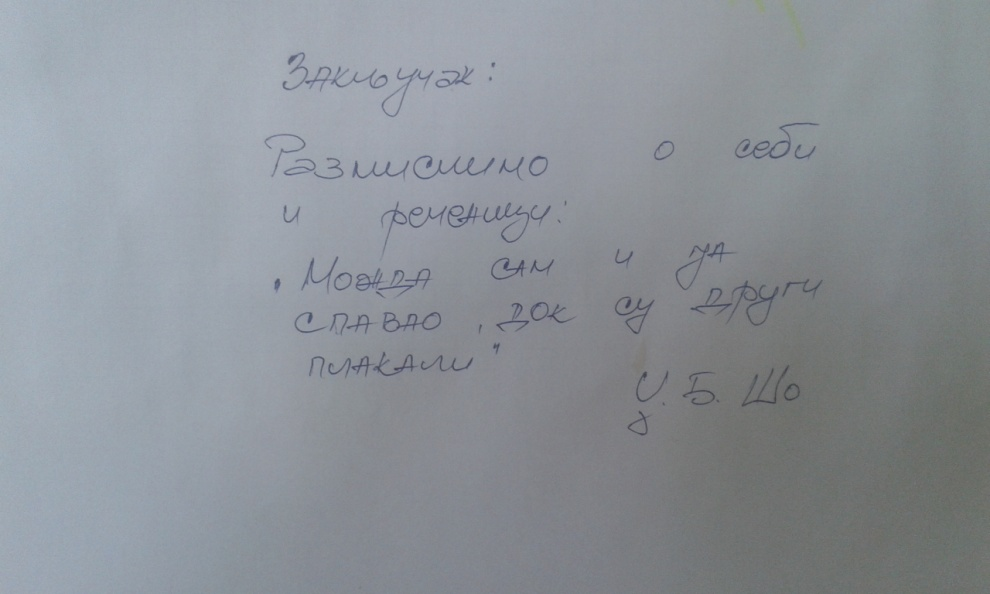 Закључак:
Размислимо о себи
и реченици:
„Можда сам и ја
спавао, док су други
плакали"
Џ. Б. Шо